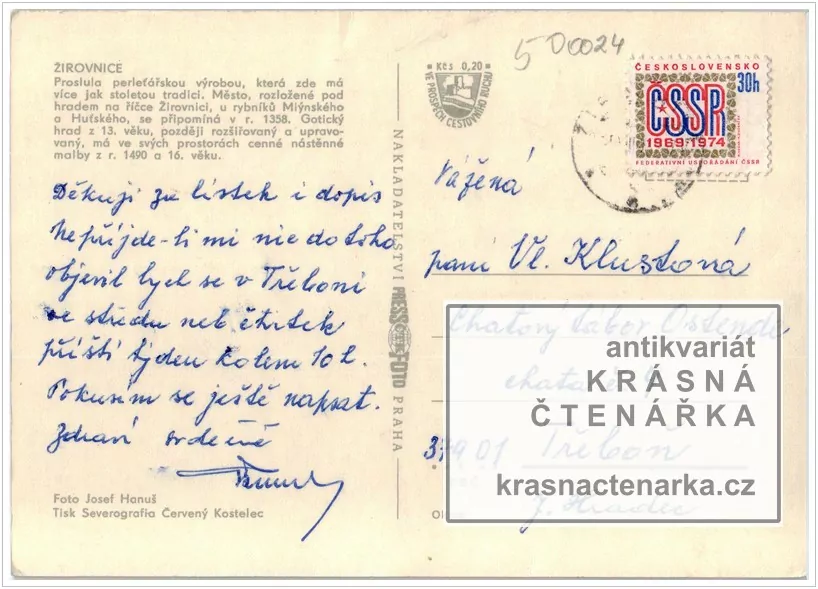 ŽIROVNICE
Proslula perleťářskou výrobou, která zde má
více jak stoletou tradici. Město, rozložené pod
hradem na říčce Žirovnici, u rybníků Mlýnského
a Huťského, se připomíná v r. 1358. Gotický
hrad z 13. věku, později rozšiřovaný a upravo-
vaný, má ve svých prostorách cenné nástěnné
malby z r. 1490 a 16. věku.
Děkuji za lístek i dopis
Nepřijde-li mi nic do toho
objevil bych se v Třeboni
ve středu neb čtvrtek
příští týden kolem 10 h.
Pokusím se ještě napsat.
Zdraví srdečně
Foto Josef Hanuš
Tisk Severografia Červený Kostelec
NAKLADATELSTVÍ PRESSFOTO PRAHA
Kčs 0,20
VE PROSPĚCH CESTOVNÍHO RUCHU
500024
ČESKOSLOVENSKO
30h
ČSSR
1969-1974
FEDERATIVNÍ USPOŘÁDÁNÍ ČSSR
Vážená
paní Vl. Klustová
Chatový tábor Ostende
chata č.
379 01 Třeboň
J. Hradec
antikvariát
KRÁSNÁ
ČTENÁŘKA
krasnactenarka.cz